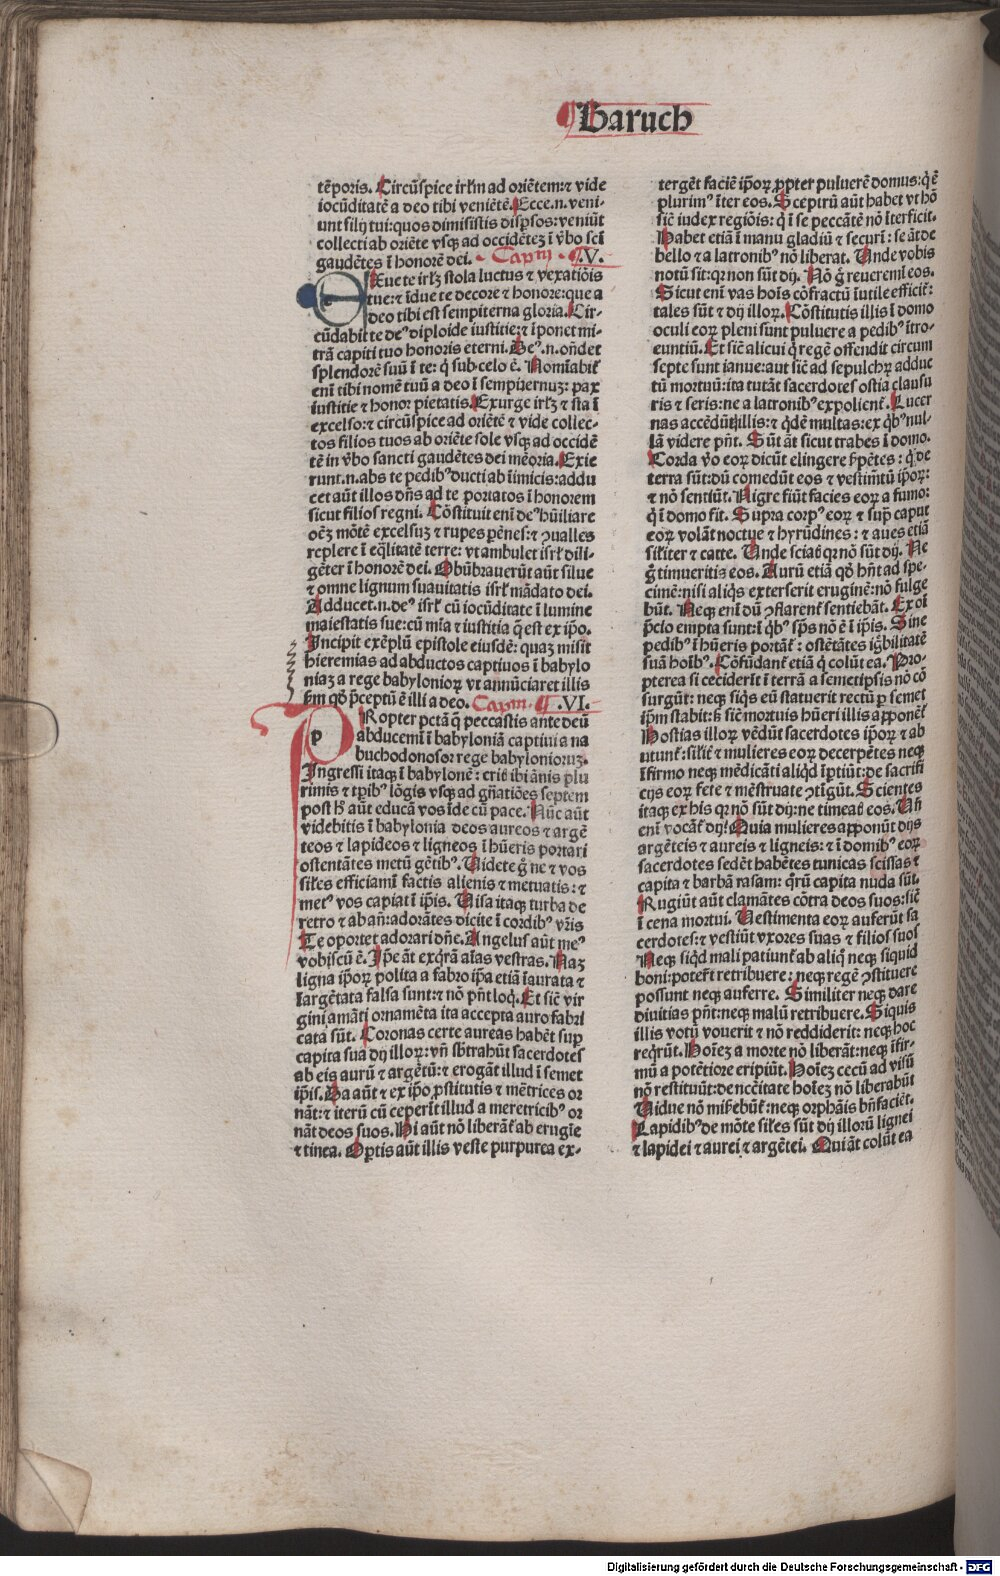 Baruch
tēporis. Circūspice irłm ad oriētem: ⁊ vide
iocūditatē a deo tibi veniētē. Ecce.n. veni-
unt filij tui: quos dimisistis disꝑsos: veniūt
collecti ab oriēte vsqꝫ ad occidētez ī v̄bo scī
gaudētes ī honorē dei. Capm .V.
EXue te irłꝫ stola luctus ⁊ vexatiōis
tue: ⁊ īdue te decore ⁊ honore: que a
deo tibi est sempiterna gloria. Cir-
cūdabit te deꝰ diploide iustitie: ⁊ īponet mi-
trā capiti tuo honoris eterni. Deꝰ.n. oñdet
splendorē suū ī te: q̄ sub celo ē. Nomīabit̄
enī tibi nomē tuū a deo ī sempiternuꝫ: pax
iustitie ⁊ honor pietatis. Exurge irłꝫ ⁊ sta ī
excelso: ⁊ circūspice ad oriētē ⁊ vide collec-
tos filios tuos ab oriēte sole vsqꝫ ad occidē
tē in v̄bo sancti gaudētes dei mēoria. Exie
runt.n. abs te pedibꝰ ducti ab īimicis: addu
cet aūt illos dñs ad te portatos ī honorem
sicut filios regni. Cōstituit enī deꝰ hūiliare
oēꝫ mōtē excelsuꝫ ⁊ rupes pēnes: ⁊ ꝯualles
replere ī eq̄litatē terre: vt ambulet isrł dili-
gēter ī honorē dei. Obūbrauerūt aūt silue
⁊ omne lignum suauitatis isrł mādato dei.
Adducet.n. deꝰ isrł cū iocūditate ī lumine
maiestatis sue: cū mīa ⁊ iustitia q̄ est ex ip̄o.
Incipit exēplū epistole eiusdē: quaꝫ misit
hieremias ad abductos captiuos ī babylo
niaꝫ a rege babylonioꝝ vt annūciaret illis
ẜm qd̄ p̄ceptū ē illi a deo. Capm .VI.
PRopter pctā q̄ peccastis ante deū
abducemī ī babyloniā captiui a na
buchodonosor rege babylonioruꝫ.
Ingressi itaqꝫ ī babylonē: erit̄ ibi ānis plu
rimis ⁊ tꝑibꝰ lōgis vsqꝫ ad gn̄atiōes septem
post h̄ aūt educā vos īde cū pace. Nūc aūt
videbitis ī babylonia deos aureos ⁊ argē
teos ⁊ lapideos ⁊ ligneos ī hūeris portari
ostentātes metū gētibꝰ. Uidete g̊ ne ⁊ vos
siłes efficiamī factis alienis ⁊ metuatis: ⁊
metꝰ vos capiat ī ip̄is. Uisa itaqꝫ turba de
retro ⁊ ab añ: adorātes dicite ī cordibꝰ vr̄is
Te oportet adorari dñe. Angelus aūt meꝰ
vobiscū ē. Ip̄e āt exq̄rā aīas vestras. Naꝫ
ligna ip̄oꝝ polita a fabro ip̄a etiā īaurata ⁊
īargētata falsa sunt: ⁊ nō pñt loq̄. Et sic̄ vir
gini amāti ornamēta ita accepta auro fabri
cata sūt. Coronas certe aureas habēt suꝑ
capita sua dij illoꝝ: vñ sb̄trahūt sacerdotes
ab eis aurū ⁊ argētū: ⁊ erogāt illud ī semet
ip̄is. Da aūt ⁊ ex ip̄o ꝓstitutis ⁊ mētrices or
nāt: ⁊ iterū cū ceperīt illud a meretricibꝰ or
nāt deos suos. Hi aūt nō liberāt̄ ab erugīe
⁊ tinea. Oꝑtis aūt illis veste purpurea ex-
tergēt faciē ip̄oꝝ ꝓpter puluerē domus: q̄ ē
plurimꝰ īter eos. Sceptrū aūt habet vt hō
sic̄ iudex regiōis: q̄ ī se peccātē nō īterficit.
Habet etiā ī manu gladiū ⁊ securī: se āt de
bello ⁊ a latronibꝰ nō liberat. Unde vobis
notū sit: qꝛ non sūt dij. Nō g̊ reueremī eos.
Sicut enī vas hoīs cōfractū īutile efficit̄:
tales sūt ⁊ dij illoꝝ. Cōstitutis illis ī domo
oculi eoꝝ pleni sunt puluere a pedibꝰ ītro-
euntiū. Et sic̄ alicui q̄ regē offendit circum
septe sunt ianue: aut sic̄ ad sepulchꝝ adduc
tū mortuū: ita tutāt sacerdotes ostia clausu
ris ⁊ seris: ne a latronibꝰ expolient̄. Lucer
nas accēdūt illis: ⁊ q̄dē multas: ex q̄bꝰ nul-
lā videre pñt. Sūt āt sicut trabes ī domo.
Corda v̄o eoꝝ dicūt elingere ẜpētes: q̄ de
terra sūt: dū comedūt eos ⁊ vestim̄tū ip̄oꝝ:
⁊ nō sentiūt. Nigre fiūt facies eoꝝ a fumo:
q̄ ī domo fit. Supra corpꝰ eoꝝ ⁊ sup̄ caput
eoꝝ volāt noctue ⁊ hyrūdines: ⁊ aues etiā
siłiter ⁊ catte. Unde sciatis qꝛ nō sūt dij. Ne
g̊ timueritis eos. Aurū etiā qd̄ hñt ad spe-
cimē: nisi aliq̄s exterserit eruginē: nō fulge
būt. Neqꝫ enī dū ꝯflarent̄ sentiebāt. Ex oī
p̄cio empta sunt: ī q̄bꝰ sp̄s nō ē ī ip̄is. Sine
pedibꝰ ī hūeris portāt̄: ostētātes ig̊bilitatē
suā hoībꝰ. Cōfūdant̄ etiā q̄ colūt ea. Pro-
pterea si ceciderīt ī terrā a semetipsis nō cō
surgūt: neqꝫ siq̄s eū statuerit rectū ꝑ semet
ip̄m stabit: ẜ sic̄ mortuis hūeri illis apponēt̄
Hostias illoꝝ vēdūt sacerdotes ip̄oꝝ ⁊ ab
utunt̄: siłit̄ ⁊ mulieres eoꝝ decerpētes neqꝫ
īfirmo neqꝫ mēdicāti aliq̄d īꝑtiūt: de sacrifi
cijs eoꝝ fete ⁊ mēstruate ꝯtīgūt. Scientes
itaqꝫ ex his qꝛ nō sūt dij: ne timeatis eos. Uñ
enī vocāt̄ dij? Quia mulieres apponūt dijs
argēteis ⁊ aureis ⁊ ligneis: ⁊ ī domibꝰ eoꝝ
sacerdotes sedēt habētes tunicas scissas ⁊
capita ⁊ barbā rasam: q̄rū capita nuda sūt.
Rugiūt aūt clamātes cōtra deos suos: sic̄
ī cena mortui. Uestimenta eoꝝ auferūt sa
cerdotes: ⁊ vestiūt vxores suas ⁊ filios suos
Neqꝫ siq̄d mali patiunt̄ ab aliq̄ neqꝫ siquid
boni: poter̄t retribuere: neqꝫ regē ꝯstituere
possunt neqꝫ auferre. Similiter neqꝫ dare
diuitias pñt: neqꝫ malū retribuere. Siquis
illis votū vouerit ⁊ nō reddiderit: neqꝫ hoc
req̄rūt. Hoīeꝫ a morte nō liberāt: neqꝫ īfir-
mū a potētiore eripiūt. Hoīeꝫ cecū ad visū
nō restituūt: de nc̄c̄itate hoīeꝫ nō liberabūt
Uidue nō mis̄ebūt̄: neqꝫ orphāis bn̄faciēt.
Lapidibꝰ de mōte siłes sūt dij illorū lignei
⁊ lapidei ⁊ aurei ⁊ argētei. Qui āt colūt ea
Digitalisierung gefördert durch die Deutsche Forschungsgemeinschaft - DFG